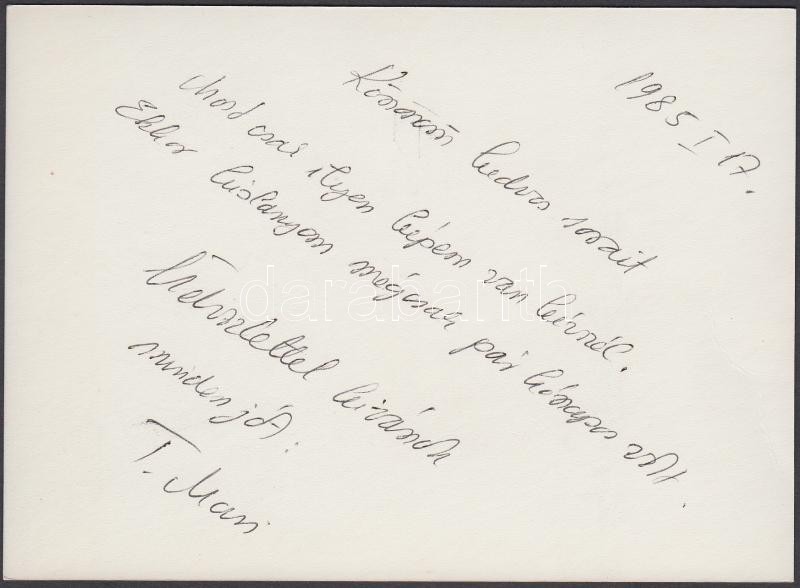 1985 I 17.
Köszönöm kedves sorait
Most csak ilyen képem van kéznél.
Ekkor kislányom mégcsak pár hónapos volt.
Üdvözlettel kívánok
minden jót:
T. Mari
darabanth